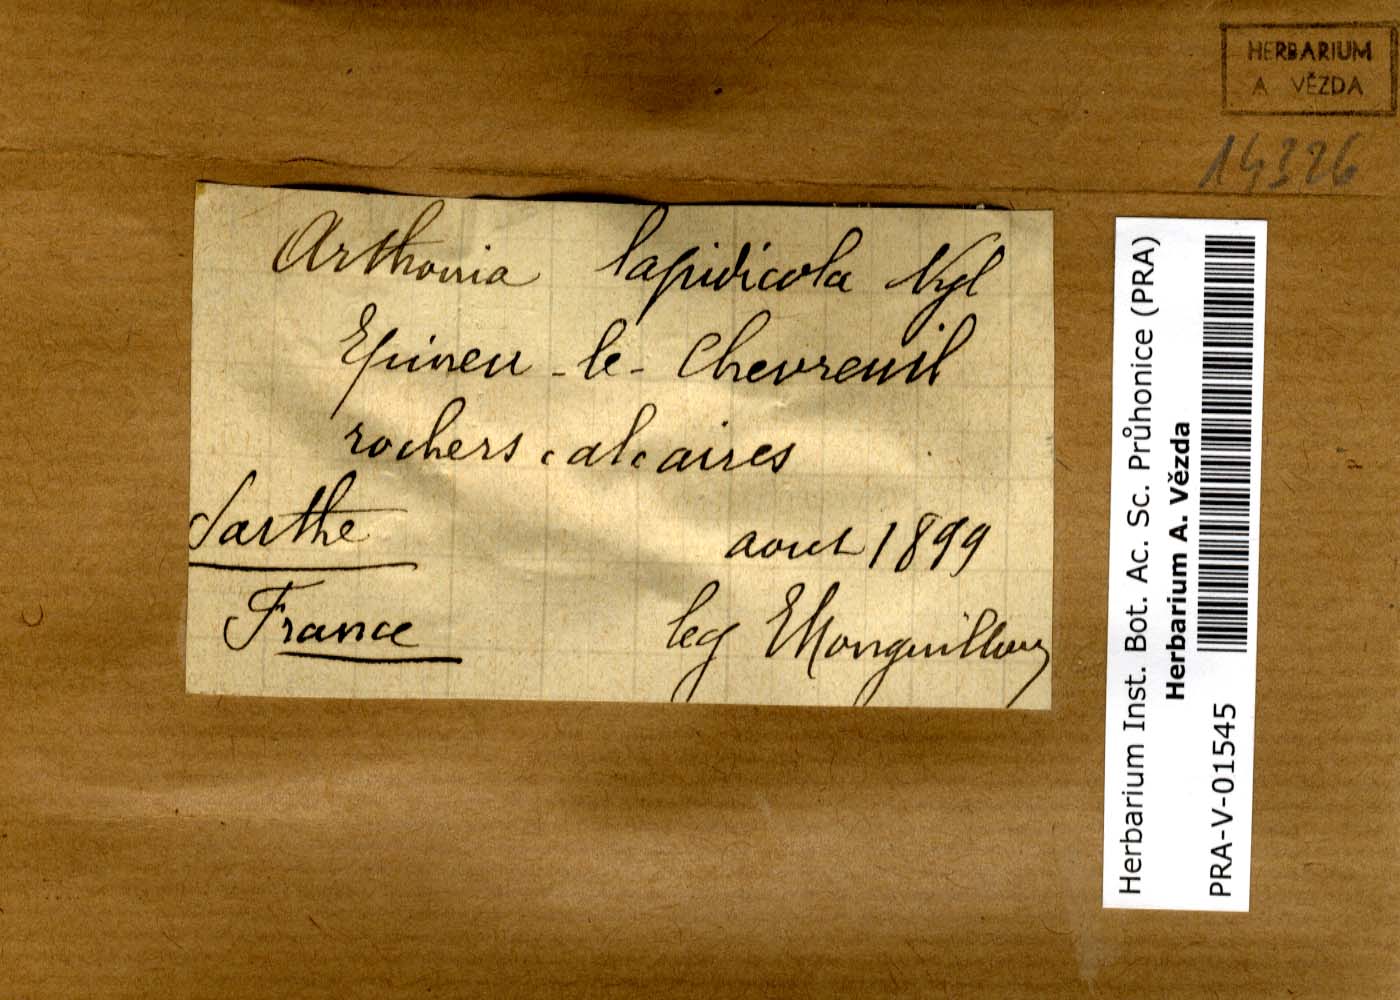 HERBARIUM
A VĚZDA
14326
Arthonia lapidicola Nyl
Epineu-le-Chevreuil
rochers calcaires
Sarthe
aout 1899
France
leg EMonguillon
Herbarium Inst. Bot. Ac. Sc. Průhonice (PRA)
Herbarium A. Vězda
PRA-V-01545